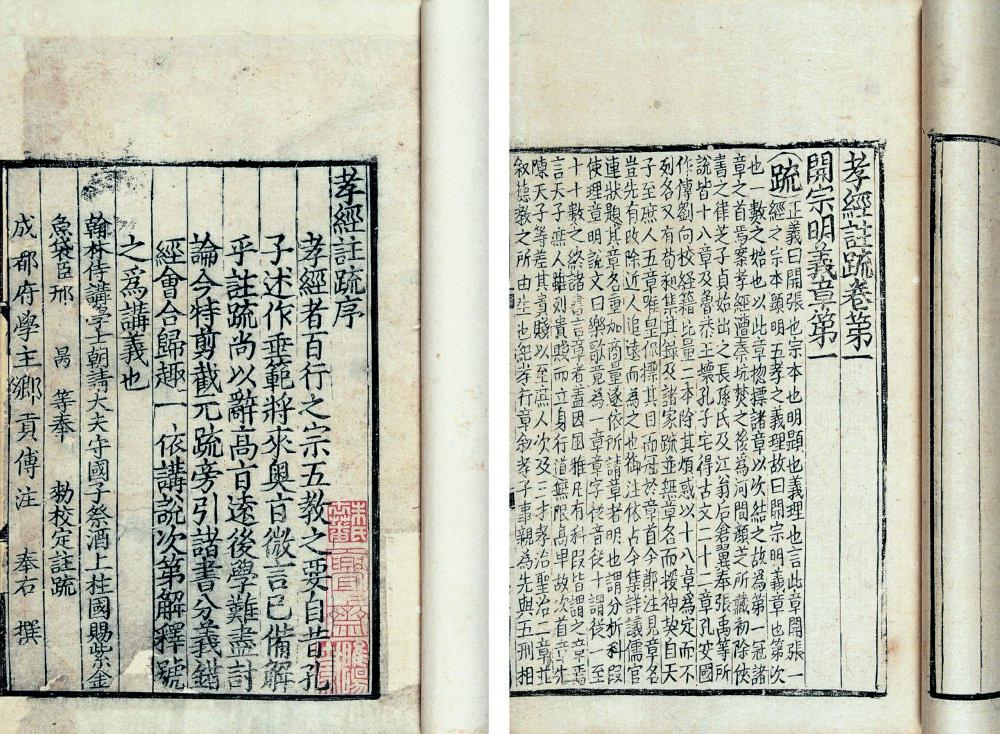 孝經註疏序
孝經者百行之宗五教之要自昔孔
子述作垂範將來奧旨微言已備解
乎註疏尚以辭高旨遠後學難盡討
論今特剪截元疏旁引諸書分義錯
經會合歸趣一依講說次第解釋號
之爲講義也
翰林侍講學士朝請大夫守國子祭酒上柱國賜紫金
魚袋臣邢昺等奉 勑校定註疏
成都府學主鄉貢傅注 奉右 撰
孝經註疏卷第一
開宗明義章第一
疏 正義曰開張也宗本也明顯也義理也言此章開張一
經之宗本顯明五孝之義理故曰開宗明義章也第次
也一數之始也以此章揔標諸章以次結之故為第一冠諸
章之首焉案孝經遭秦坑焚之後為河間顏芝所藏初除挾
書之律芝子貞始出之長孫氏及江翁后倉翼奉張禹等所
說皆十八章及魯恭王壞孔子宅得古文二十二章孔安國
作傳劉向校經籍比量二本除其煩惑以十八章為定而不
列名又有荀昶集其錄及諸家疏並無章名而援神契自天
子至庶人五章唯皇侃標其目而冠於章首今鄭注見章名
豈先有改除近人追遠而為之也御注依古今集詳議儒官
連狀題其章名重加商量遂依所請章者明也謂分析科段
使理章明說文曰樂歌竟為一章章字從音從十謂從一至
十十數之終諸書言章者蓋因風雅凡有科段皆謂之章焉
言天子庶人雖列貴賤而立身行道無限高卑故次首章先
陳天子等差其貴賤以至庶人次及三才孝治聖治三章並
叙德教之所由生也紀孝行章敘孝子事親為先與五刑相